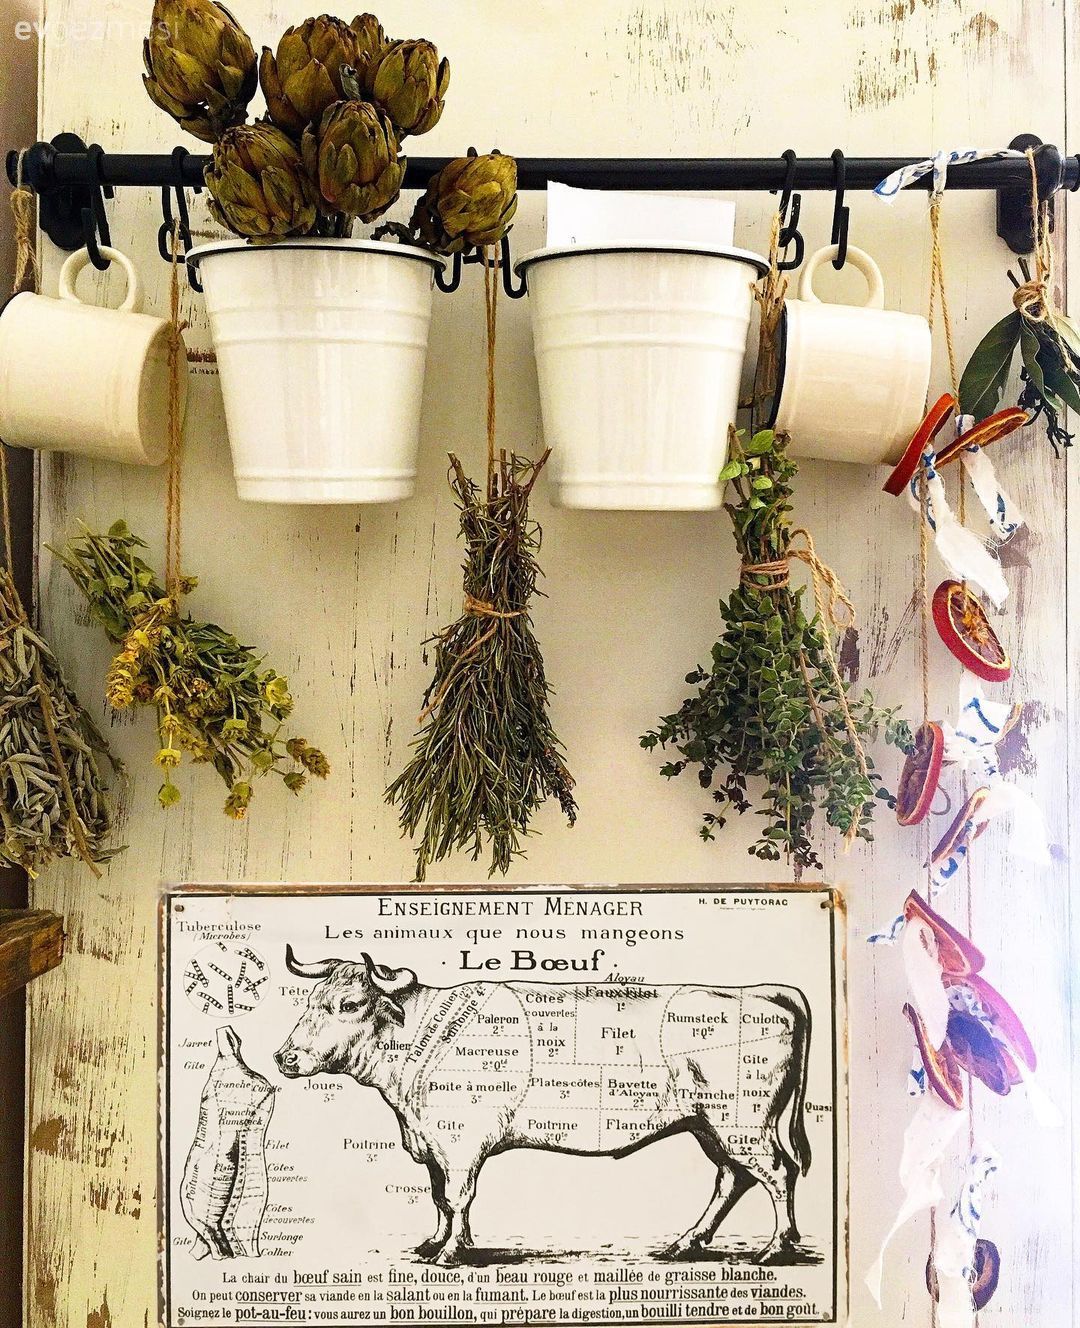 evgezmesi
ENSEIGNEMENT MENAGER
H. DE PUYTORAC
Les animaux que nous mangeons
· Le Bœuf ·
Tuberculose
(Microbes)
Tête
3ᵉ
Talon de Collier
Surlonge
Collier
3ᵉ
Joues
3ᵉ
Paleron
2ᵉ
Macreuse
2ᵉ Qté
Boite à moelle
3ᵉ
Gite
3ᵉ
Poitrine
3ᵉ
Crosse
3ᵉ
Côtes
couvertes
à la
noix
2ᵉ
Aloyau
Faux-Filet
1ᵉ
Filet
1ᵉ
Plates-côtes
3ᵉ
Bavette
d'Aloyau
2ᵉ
Poitrine
3ᵉ Qté
Flanchet
Rumsteck
1ᵉ Qté
Culotte
1ᵉ
Gite
à la
noix
1ᵉ
Tranche
1ᵉ
Quasi
1ᵉ
Gite
3ᵉ
Crosse
3ᵉ
Jarret
Gite
Tranche
Culotte
Tranche
Rumsteck
Flanchet
Filet
Côtes
couvertes
Poitrine
Côtes
découvertes
Surlonge
Gite
Collier
La chair du bœuf sain est fine, douce, d'un beau rouge et maillée de graisse blanche.
On peut conserver sa viande en la salant ou en la fumant. Le bœuf est la plus nourrissante des viandes.
Soignez le pot-au-feu: vous aurez un bon bouillon, qui prépare la digestion, un bouilli tendre et de bon goût.